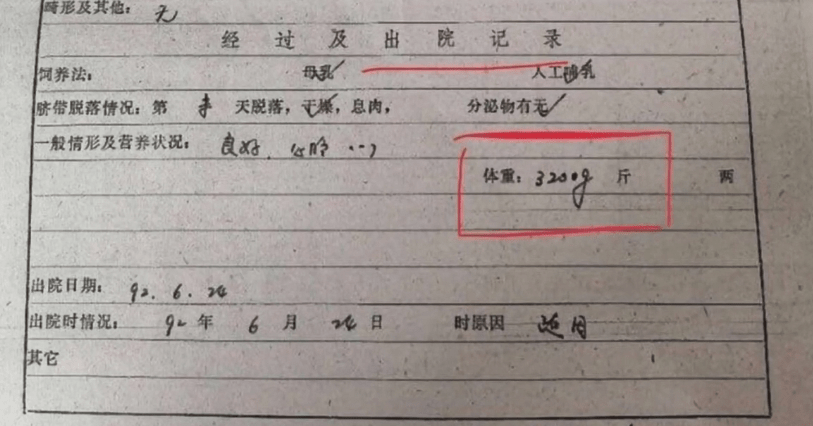 畸形及其他: 无
经过及出院记录
饲养法: 母乳 人工哺乳
脐带脱落情况: 第 未 天脱落, 干燥, 息肉, 分泌物有无
一般情形及营养状况: 良好. 心肺
体重: 3200g 斤 两
出院日期: 92. 6. 24
出院时情况: 92 年 6 月 24 日 时原因
其它